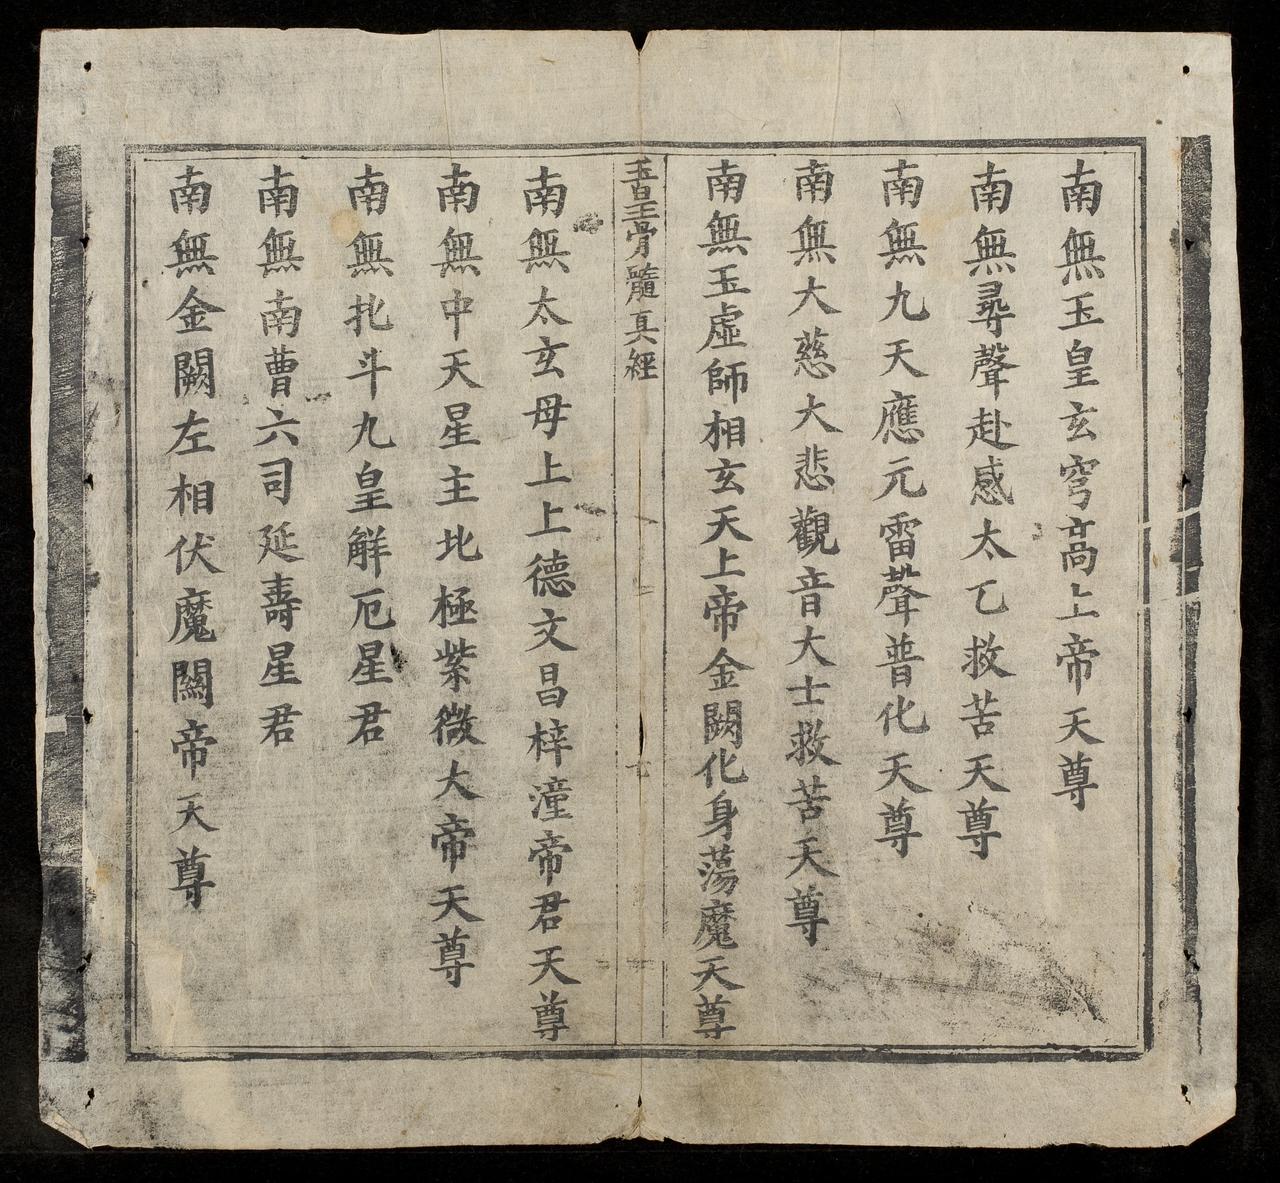 南無玉皇玄穹高上帝天尊
南無尋聲赴感太乙救苦天尊
南無九天應元雷聲普化天尊
南無大慈大悲觀音大士救苦天尊
南無玉虛師相玄天上帝金闕化身蕩魔天尊
玉皇骨髓真經
南無太玄母上上德文昌梓潼帝君天尊
南無中天星主北極紫微大帝天尊
南無北斗九皇解厄星君
南無南曹六司延壽星君
南無金闕左相伏魔關帝天尊